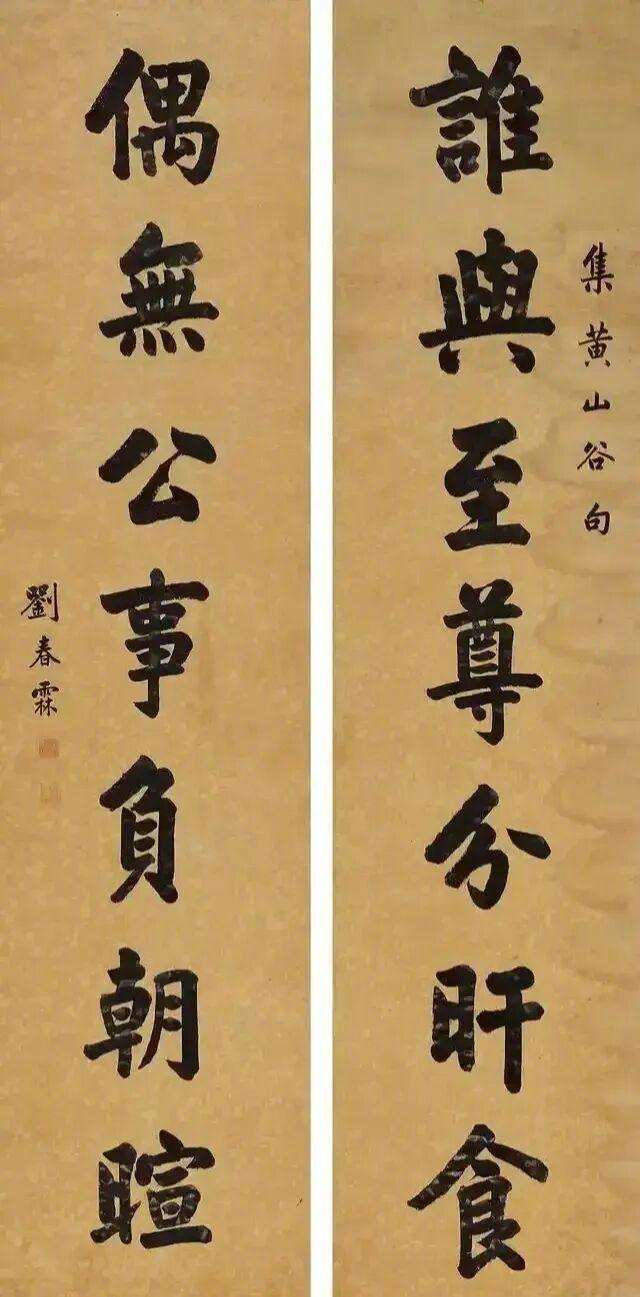 集黄山谷句
誰與至尊分旰食
偶無公事負朝暄
劉春霖